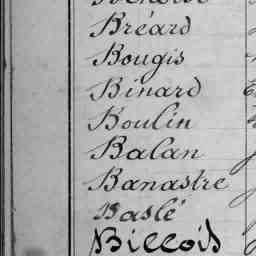 Bréard
Bougis
Binard
Boulin
Balan
Banastre
Baslé
Billois